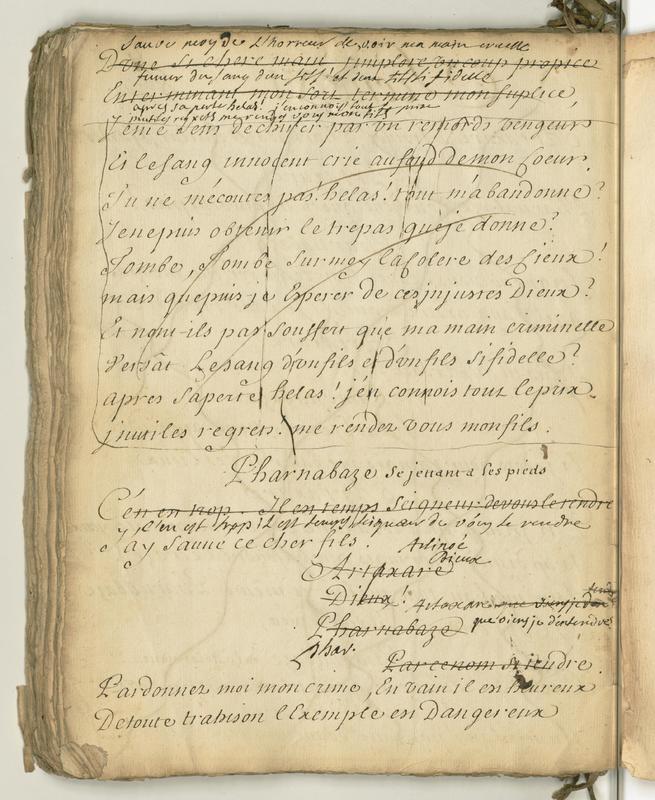 Sauve moy de l'horreur de voir ma main cruelle
D'une Si chere main j'implore un coup propice
fumer du sang d'un fils! et d'un fils si fidelle
En terminant mon Sort termine mon suplice,
après sa perte helas! j'en connois tout le prix
inutiles regrets me rendez vous mon fils
Je me Sens dechirer par un remords vengeur
Et le Sang innocent crie au fond de mon Coeur.
Tu ne m'écoutes pas! helas! tout m'abandonne?
Je ne puis obtenir le trepas que je donne?
Tombe, Tombe Sur moy la Colere des Cieux!
mais que puis je Esperer de ces injustes Dieux?
Et n'ont-ils pas Souffert que ma main criminelle
Versât Le sang d'un fils et d'un fils si fidelle?
apres Sa perte helas! j'en connois tout le prix.
jnutiles regrets! me rendez vous mon fils.
Pharnabaze se jettant a ses pieds
C'en est trop. Il est temps Seigneur de vous le rendre
C'en est trop il est temps seigneur de vous le rendre
J'ay Sauvé ce cher fils.
Arsinoé
Dieux
Artaxare
Dieux!
Artaxare
que viens je d'entendre
Pharnabaze
Phar.
Pardonnez moi mon crime, En vain il est heureux
De toute trahison l'Exemple est Dangereux